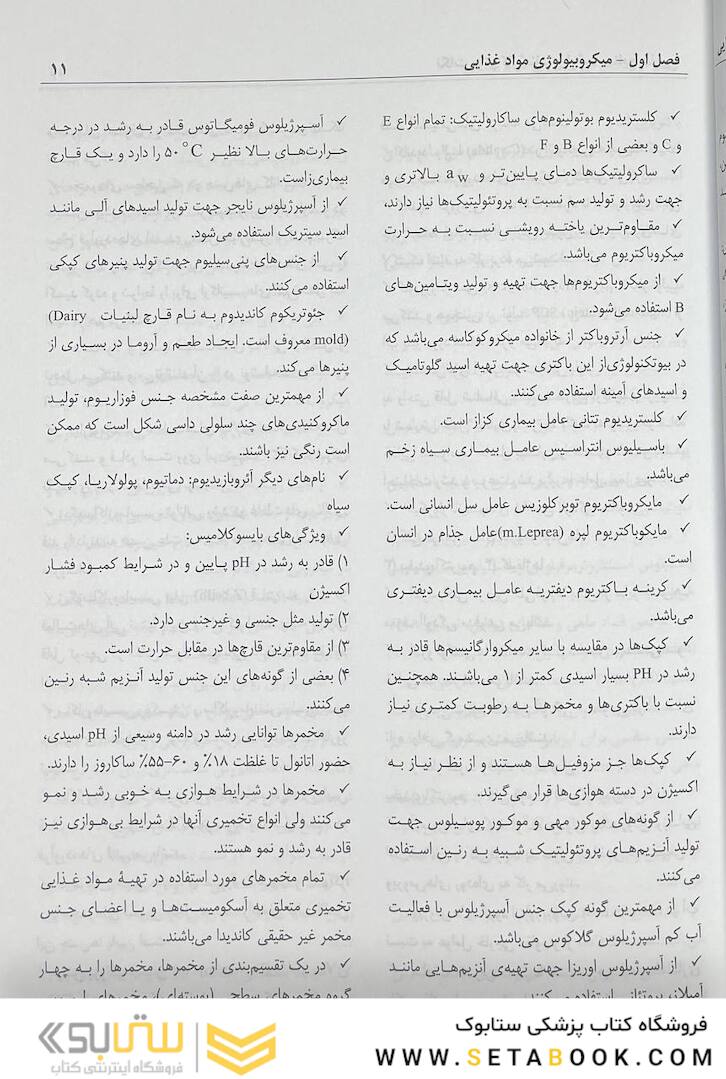 فصل اول – میکروبیولوژی مواد غذایی
۱۱
✓ کلستریدیوم بوتولینوم‌های ساکارولیتیک: تمام انواع E
و C و بعضی از انواع B و F
✓ ساکرولیتیک‌ها دمای پایین‌تر و aw بالاتری و
جهت رشد و تولید سم نسبت به پروتئولیتیک‌ها نیاز دارند،
✓ مقـاوم‌تـریـن یاخـتـه رویـشـی نـسـبـت بـه حـرارت
میکروباکتریوم می‌باشد.
✓ از میکروباکتریوم‌ها جهت تهیه و تولید ویتامین‌های
B استفاده می‌شود.
✓ جنس آرتروباکتر از خانواده میکروکوکاسه می‌باشد که
در بیوتکنولوژی‌از این باکتری جهت تهیه اسید گلوتامیک
و اسیدهای آمینه استفاده می‌کنند.
✓ کلستریدیوم تتانی عامل بیماری کزاز است.
✓ باسیلیوس انتراسیس عامل بیماری سیاه زخم
می‌باشد.
✓ مایکروباکتریوم توبرکلوزیس عامل سل انسانی است.
✓ مایکوباکتریوم لپره (m.Leprea)عامل جذام در انسان
است.
✓ کرینه باکتریوم دیفتریه عامل بیماری دیفتری
می‌باشد.
✓ کپک‌ها در مقایسه با سایر میکروارگانیسم‌ها قادر به
رشد در PH بسیار اسیدی کمتر از ۱ می‌باشند. همچنین
نسبت با باکتری‌ها و مخمرها به رطوبت کمتری نیاز
دارند.
✓ کپک‌ها جز مزوفیل‌ها هستند و از نظر نیاز به
اکسیژن در دسته هوازی‌ها قرار می‌گیرند.
✓ از گونه‌های موکور مهی و موکور پوسیلوس جهت
تولید آنزیم‌های پروتئولیتیک شبیه به رنین استفاده
می‌کنند.
✓ از مهمترین گونه کپک جنس آسپرژیلوس با فعالیت
آب کم آسپرژیلوس گلاکوس می‌باشد.
✓ از آسپرژیلوس اوریزا جهت تهیه‌ی آنزیم‌هایی مانند
آمیلاز، پروتئاز استفاده می‌کنند.
✓ آسپرژیلوس فومیگاتوس قادر به رشد در درجه
حرارت‌های بالا نظیر ۵۰°C را دارد و یک قارچ
بیماری‌زاست.
✓ از آسپرژیلوس نایجر جهت تولید اسیدهای آلی مانند
اسید سیتریک استفاده می‌شود.
✓ از جنس‌های پنی‌سیلیوم جهت تولید پنیرهای کپکی
استفاده می‌کنند.
✓ جئوتریکوم کاندیدوم به نام قارچ لبنیات (Dairy
mold) معروف است. ایجاد طعم و آروما در بسیاری از
پنیرها می‌کند.
✓ از مهمترین صفت مشخصه جنس فوزاریوم، تولید
ماکروکنیدی‌های چند سلولی داسی شکل است که ممکن
است رنگی نیز باشند.
✓ نام‌های دیگر آئروبازیدیوم: دماتیوم، پولولاریا، کپک
سیاه
✓ ویژگی‌های بایسوکلامیس:
۱) قادر به رشد در pH پایین و در شرایط کمبود فشار
اکسیژن
۲) تولید مثل جنسی و غیرجنسی دارد.
۳) از مقاوم‌ترین قارچ‌ها در مقابل حرارت است.
۴) بعضی از گونه‌های این جنس تولید آنزیم شبه رنین
می‌کنند.
✓ مخمرها توانایی رشد در دامنه وسیعی از pH اسیدی،
حضور اتانول تا غلظت ۱۸٪ و ۶۰–۵۵٪ ساکاروز را دارند.
✓ مخمرها در شرایط هوازی به خوبی رشد و نمو
می‌کنند ولی انواع تخمیری آنها در شرایط بی‌هوازی نیز
قادر به رشد و نمو هستند.
✓ تمام مخمرهای مورد استفاده در تهیهٔ مواد غذایی
تخمیری متعلق به آسکومیست‌ها و یا اعضای جنس
مخمر غیر حقیقی کاندیدا می‌باشند.
✓ در یک تقسیم‌بندی از مخمرها، مخمرها را به چهار
گروه مخمرهای سطحی (پوسته‌ای)، مخمرهای
فروشگاه کتاب پزشکی ستابوک
WWW.SETABOOK.COM
ستابوک
فروشگاه اینترنتی کتاب